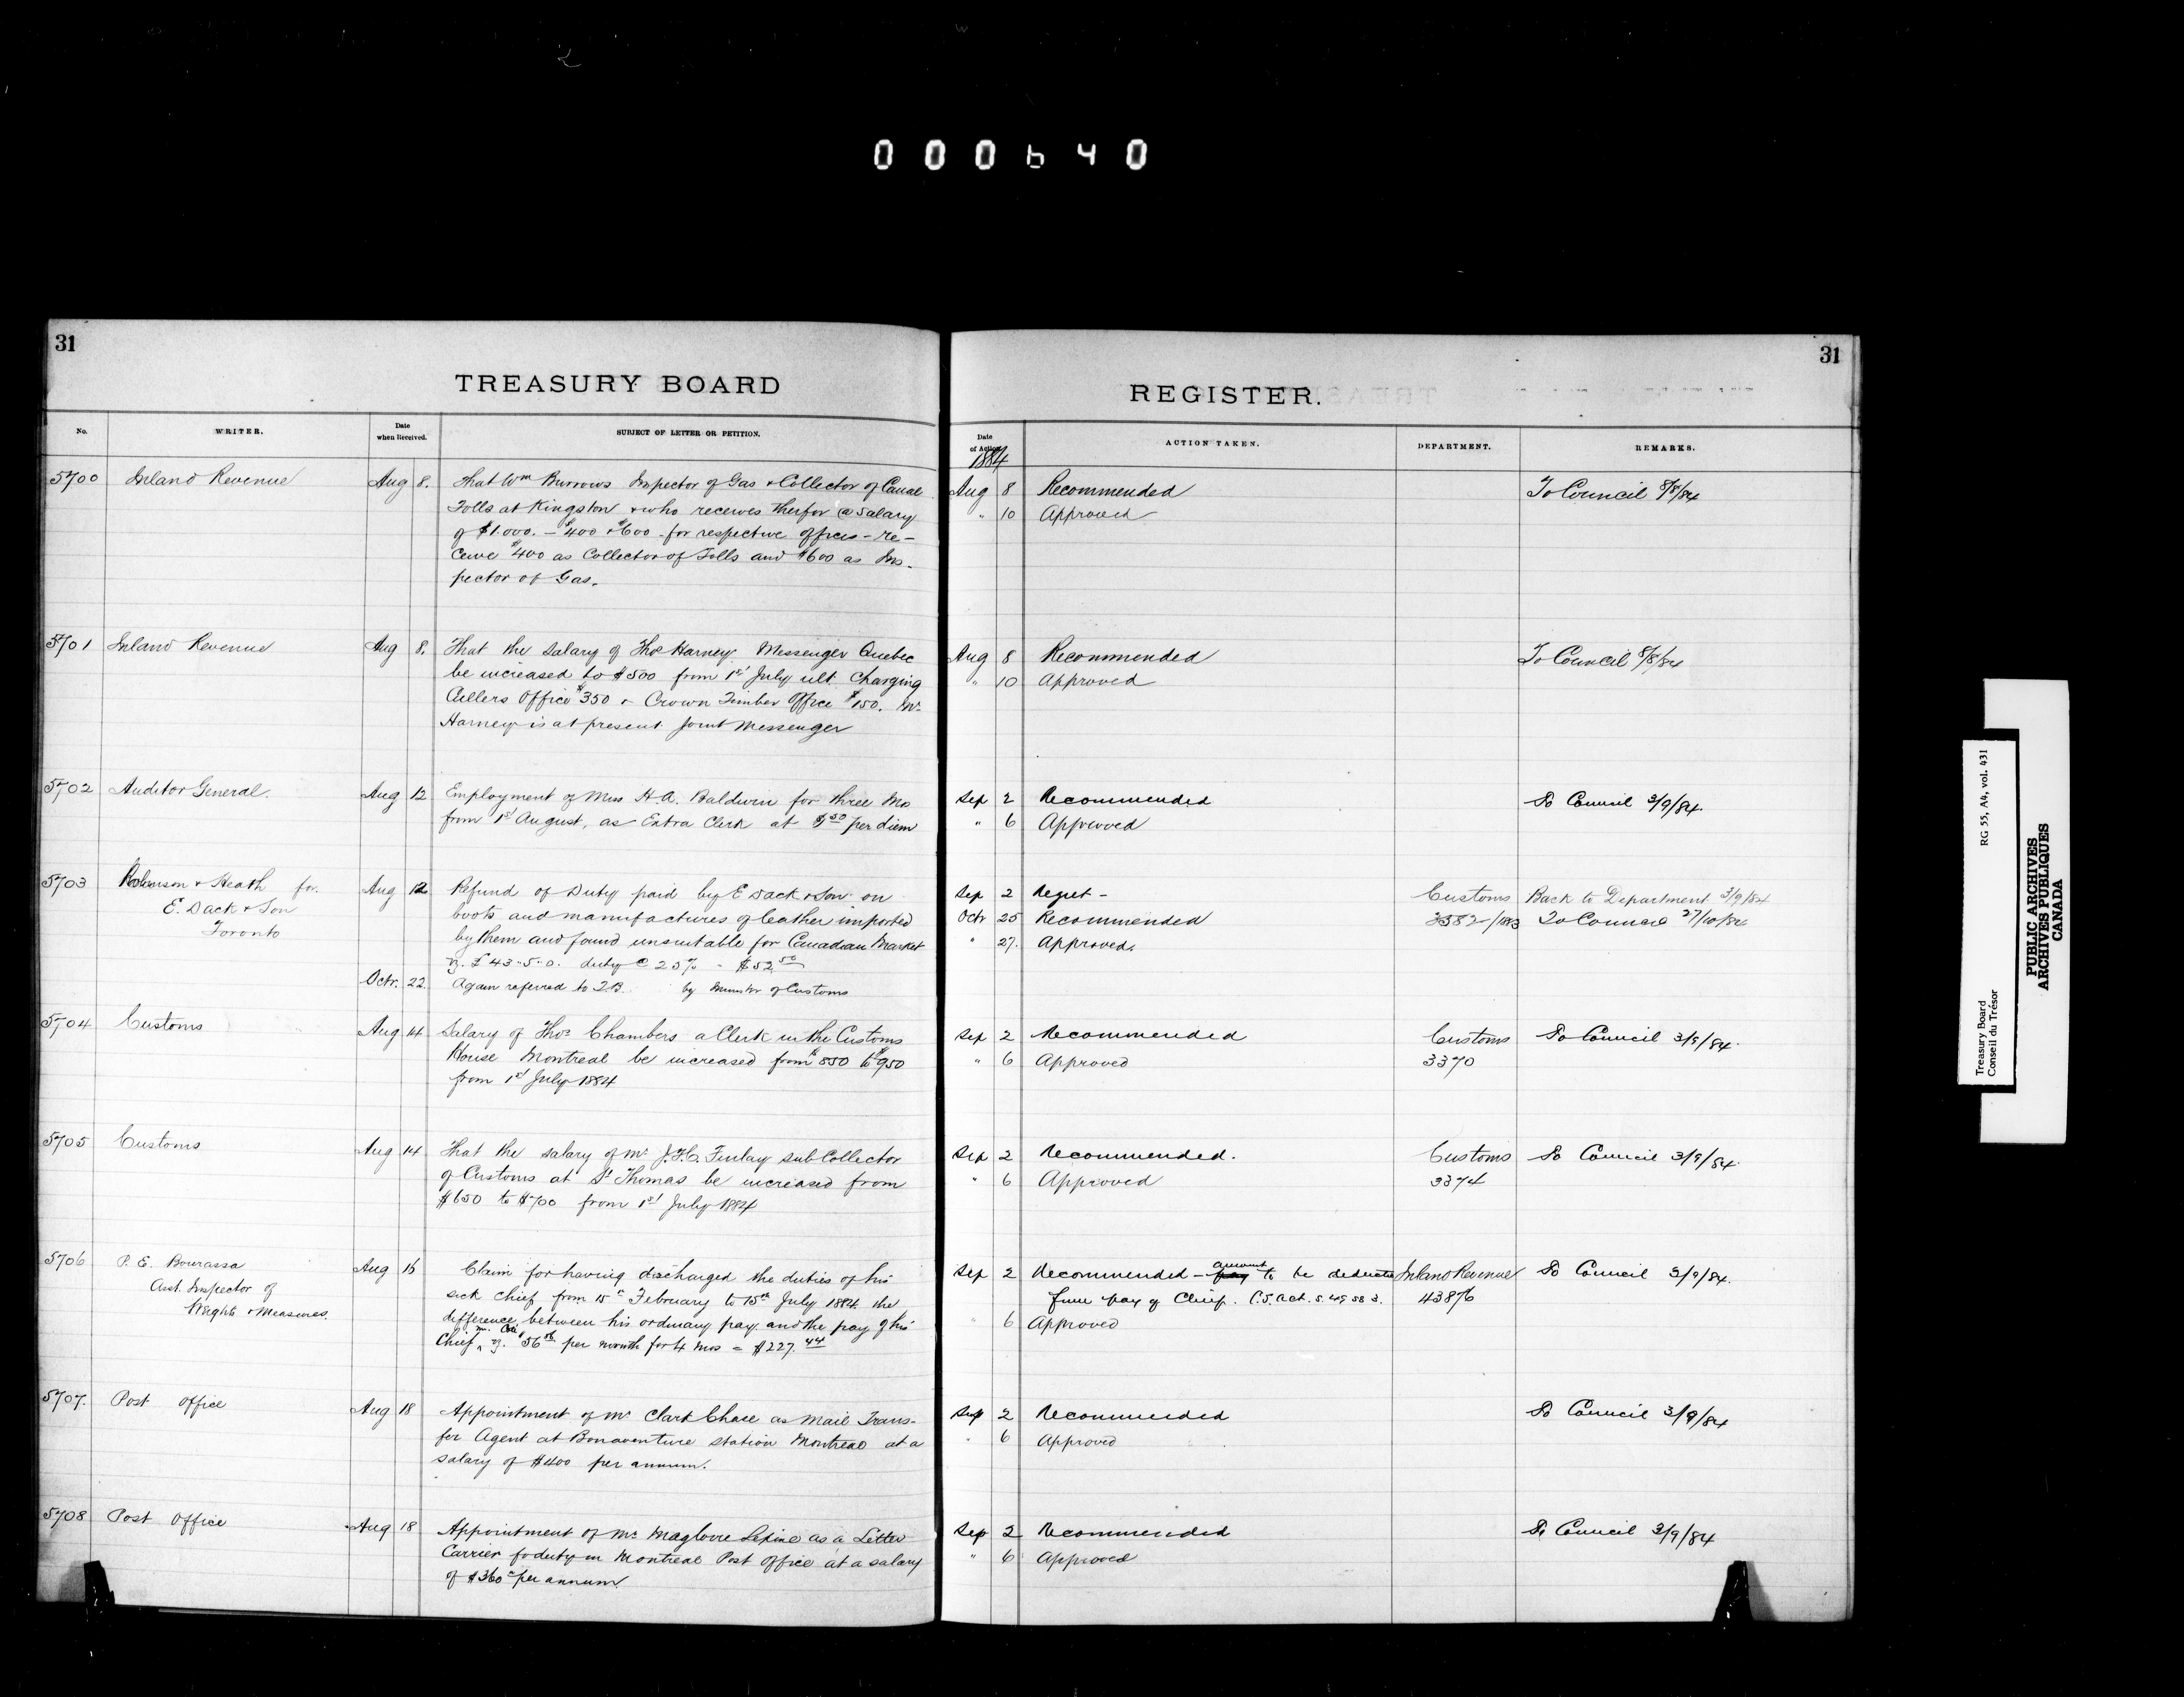 000640
31
TREASURY BOARD
No. WRITER. Date when Received. SUBJECT OF LETTER OR PETITION.
5700 Inland Revenue Aug 8. That Wm Burrows Inspector of Gas & Collector of Canal
Tolls at Kingston & who receives therfor a Salary
of $1.000. - $400 & $600 - for respective offices - re-
ceive $400 as Collector of Tolls and $600 as Ins-
pector of Gas.
5701 Inland Revenue Aug 8. That the Salary of Thos Harney Messenger Quebec
be increased to $500 from 1st July ult. Charging
Cullers Office $350 & Crown Timber Office $150. Mr.
Harney is at present Joint Messenger
5702 Auditor General. Aug 12 Employment of Miss H.A. Baldwin for three Mos
from 1st August, as Extra Clerk at per diem
5703 Robinson & Heath for Aug 12 Refund of Duty paid by E Dack & Son on
E. Dack & Son boots and manufactures of leather imported
Toronto by them and found unsuitable for Canadian Market
vz. £43..5..0. duty @ 25% - $52.50
Octr. 22 Again referred to T.B. by Minister of Customs
5704 Customs Aug 14 Salary of Thos Chambers a Clerk in the Customs
House Montreal be increased from $850 to $950
from 1st July 1884
5705 Customs Aug 14 That the salary of Mr J.H.C. Finlay sub Collector
of Customs at St Thomas be increased from
$650 to $700 from 1st July 1884
5706 P. E. Bourassa Aug 16 Claim for having discharged the duties of his
Asst. Inspector of sick chief from 15th February to 15th July 1884 the
Weights & Measures. difference between his ordinary pay and the pay of his
Chief vz. $56 per month for 4 mos = $227.44
5707. Post Office Aug 18 Appointment of Mr Clark Chase as Mail Trans-
fer Agent at Bonaventure Station Montreal at a
salary of $400 per annum.
5708 Post Office Aug 18 Appointment of Mr Magloire Lepine as a Letter
Carrier for duty in Montreal Post Office at a salary
of $360 per annum
31
REGISTER.
Date of Action ACTION TAKEN. DEPARTMENT. REMARKS.
1884
Aug 8 Recommended To Council 8/8/84
" 10 Approved
Aug 8 Recommended To Council 8/8/84
" 10 Approved
Sep 2 Recommended To Council 3/9/84.
" 6 Approved
Sep 2 Regret - Customs Back to Department 3/9/84
Octr 25 Recommended 3582/1883 To Council 27/10/84
" 27. Approved.
Sep 2 Recommended Customs To Council 3/9/84.
" 6 Approved 3370
Sep 2 Recommended. Customs To Council 3/9/84.
" 6 Approved 3374
Sep 2 Recommended - amount to be deducted Inland Revenue To Council 3/9/84.
from pay of Chief. C.S. Act. S. 49 SS 3. 43876
" 6 Approved
Sep 2 Recommended To Council 3/9/84
" 6 Approved
Sep 2 Recommended To Council 3/9/84
" 6 Approved
Treasury Board RG 55, A4, vol. 431
Conseil du Trésor
PUBLIC ARCHIVES
ARCHIVES PUBLIQUES
CANADA